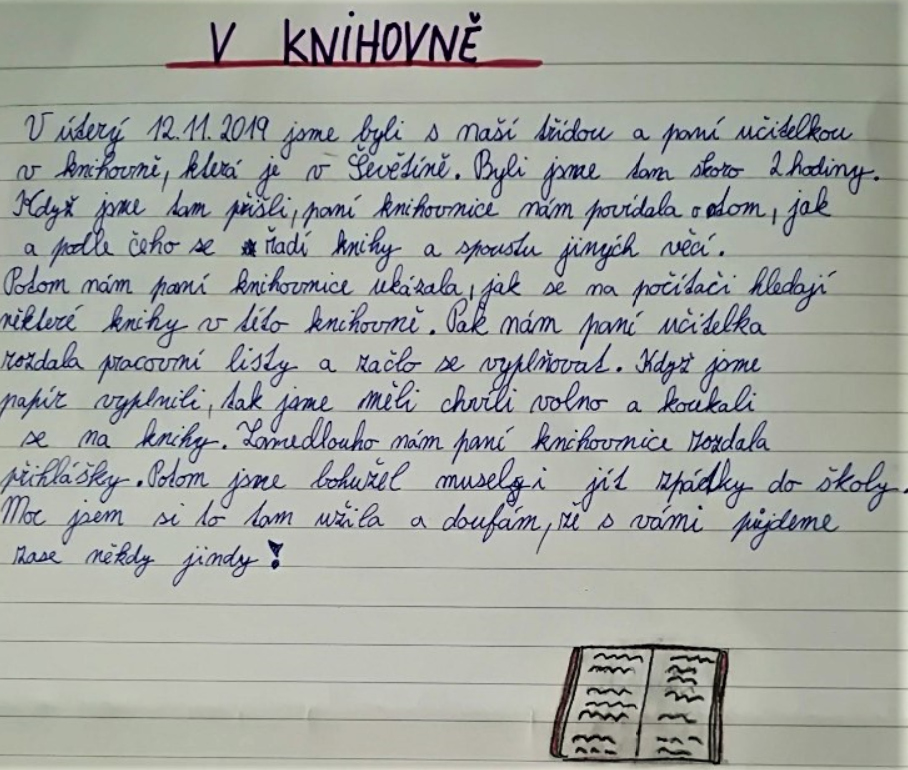 V KNIHOVNĚ
V úterý 12.11.2019 jsme byli s naší třídou a paní učitelkou
v knihovně, která je v Ševětíně. Byli jsme tam skoro 2 hodiny.
Když jsme tam přišli, paní knihovnice nám povídala o tom, jak
a podle čeho se řadí knihy a spoustu jiných věcí.
Potom nám paní knihovnice ukázala, jak se na počítači hledají
některé knihy v této knihovně. Pak nám paní učitelka
rozdala pracovní listy a začlo se vyplňovat. Když jsme
papír vyplnili, tak jsme měli chvíli volno a koukali
se na knihy. Zanedlouho nám paní knihovnice rozdala
přihlášky. Potom jsme bohužel museli jít zpádky do školy.
Moc jsem si to tam užila a doufám, že s vámi půjdeme
zase někdy jindy!